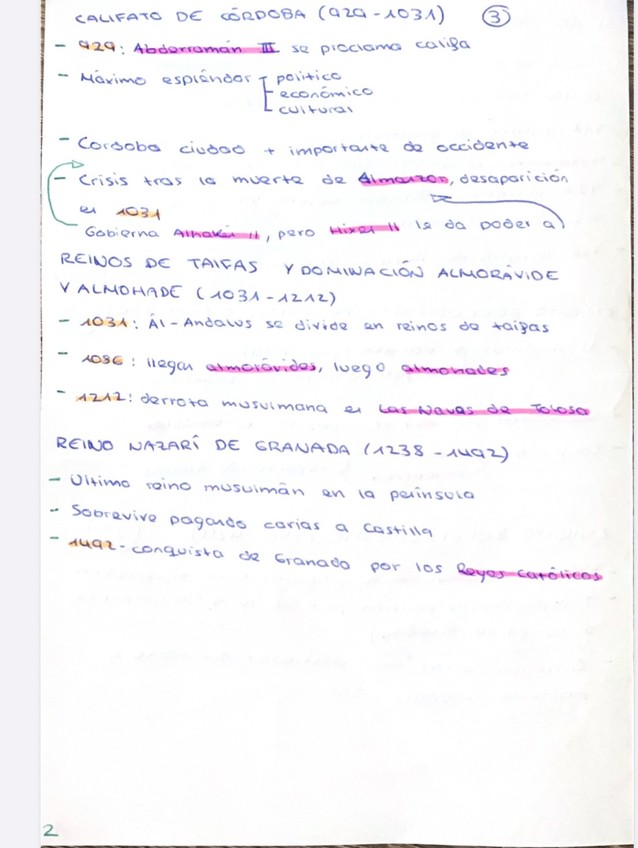 CALIFATO DE CÓRDOBA (929-1031) 3
- 929: Abderramán III se proclama califa
- Máximo esplendor político
económico
cultural
- Cordoba ciudad + importante de occidente
- Crisis tras la muerte de Almanzor, desaparición
en 1031
Gobierna Alhakén II, pero Hixen II le da poder a
REINOS DE TAIFAS Y DOMINACIÓN ALMORÁVIDE
Y ALMOHADE (1031-1212)
- 1031: Ál-Andalus se divide en reinos de taifas
- 1086: llegan almorávides, luego almohades
- 1212: derrota musulmana en Las Navas de Tolosa
REINO NAZARÍ DE GRANADA (1238-1492)
- Último reino musulmán en la península
- Sobrevive pagando parias a Castilla
- 1492-conquista de Granada por los Reyes Católicos
2